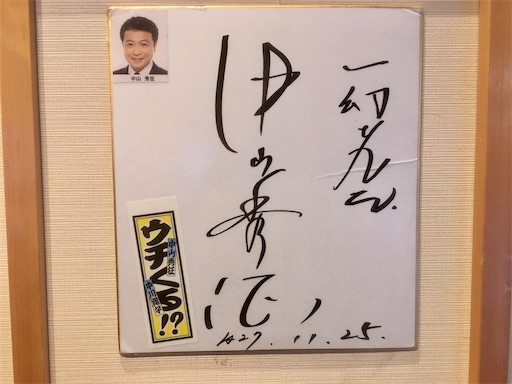 中山 秀征
一幻
中山秀征
H27.11.25.
ウチくる!?
中山秀征
中川翔子